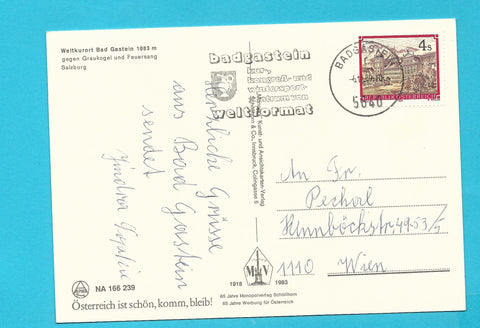 Weltkurort Bad Gastein 1083 m
gegen Graukogel und Feuersang
Salzburg
badgastein
kur-,
kongreß- und
wintersport-
zentrum von
weltformat
BADGASTEIN
5640
4 S
REPUBLIK ÖSTERREICH
Herzliche Grüsse
aus Bad Gastein
sendet
An Fr.
Pechal
Hennböckstr. 49-53/
1110 Wien
Kunst- und Ansichtskarten-Verlag
& Co., Innsbruck, Colingasse 5
1918 1983
65 Jahre Monopolverlag Schöllhorn
65 Jahre Werbung für Österreich
NA 166 239
Österreich ist schön, komm, bleib!